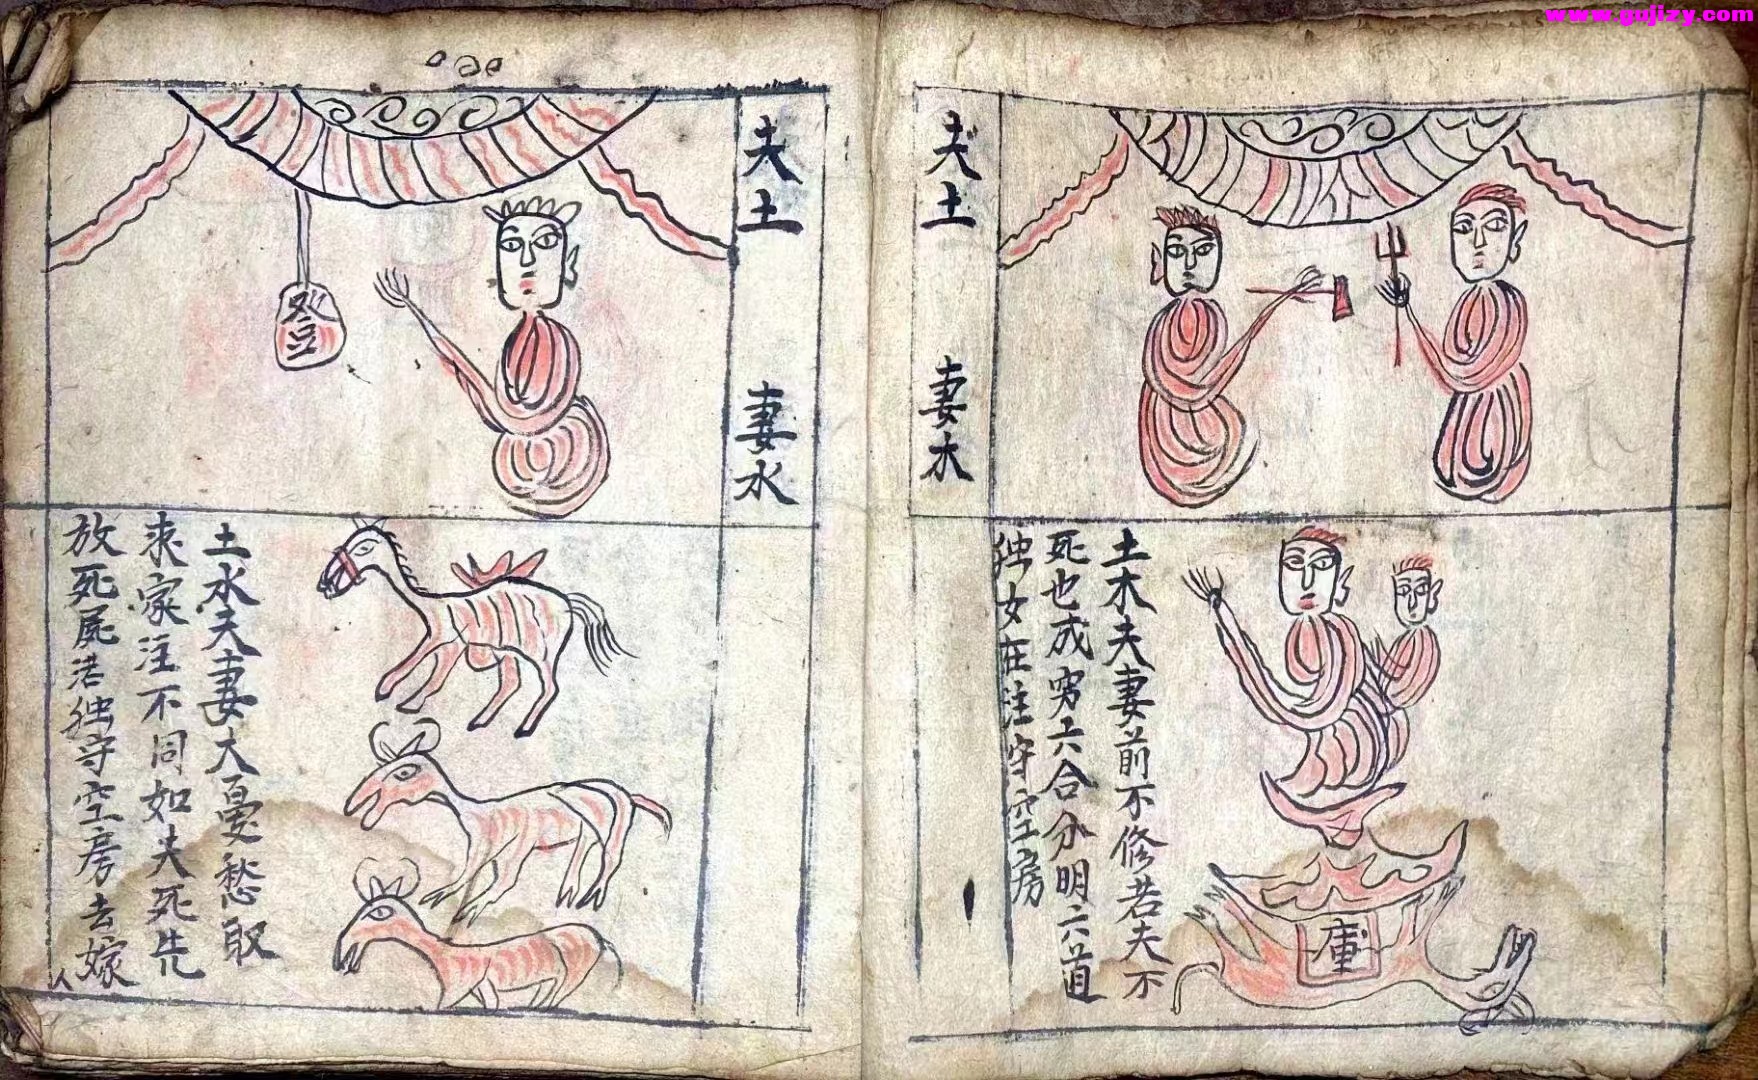 www.gujizy.com
夫土 妻木
土木夫妻前不修若夫不
死也成穷六合分明六道
独女在注守空房
庫
夫土 妻水
登
土水夫妻大憂愁取
来家注不同如夫死先
放死屍活独守空房去嫁
人